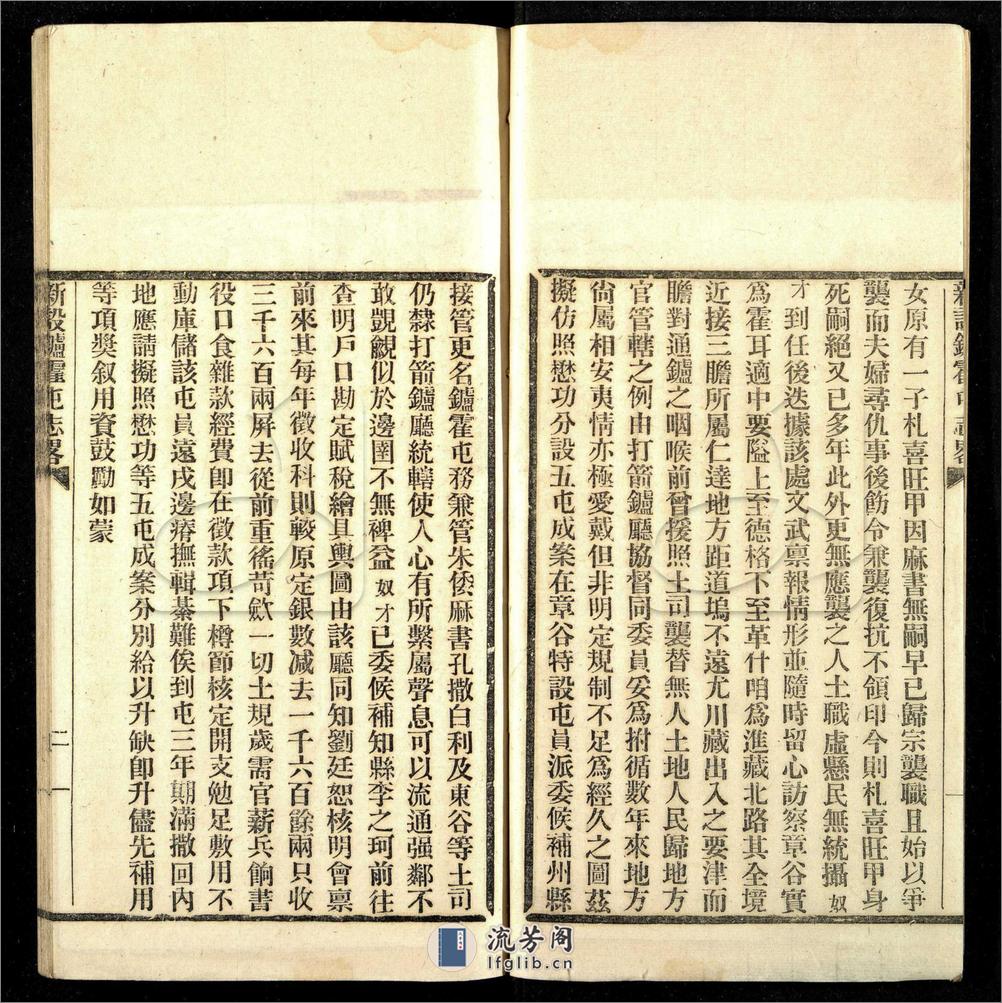 女原有一子札喜旺甲因麻書無嗣早已歸宗襲職且始以爭
襲而夫婦尋仇事後飭令兼襲復抗不領印今則札喜旺甲身
死嗣絕又已多年此外更無應襲之人土職虛懸民無統攝奴
才到任後迭據該處文武禀報情形並隨時留心訪察章谷實
爲霍耳適中要隘上至德格下至革什咱爲進藏北路其全境
近接三瞻所屬仁達地方距道塢不遠尤川藏出入之要津而
瞻對通鑪之咽喉前曾援照土司襲替無人土地人民歸地方
官管轄之例由打箭鑪廳協督同委員妥爲拊循數年來地方
尙屬相安夷情亦極愛戴但非明定規制不足爲經久之圖茲
擬仿照懋功分設五屯成案在章谷特設屯員派委候補州縣
接管更名鑪霍屯務兼管朱倭麻書孔撒白利及東谷等土司
仍隸打箭鑪廳統轄使人心有所繫屬聲息可以流通强鄰不
敢覬覦似於邊圉不無裨益奴才已委候補知縣李之珂前往
查明戶口勘定賦稅繪具輿圖由該廳同知劉廷恕核明會禀
前來其每年徵收科則較原定銀數減去一千六百餘兩只收
三千六百兩屏去從前重徭苛歛一切土規歲需官薪兵餉書
役口食雜款經費卽在徵款項下樽節核定開支勉足敷用不
動庫儲該屯員遠戍邊瘠撫輯綦難俟到屯三年期滿撤回內
地應請擬照懋功等五屯成案分別給以升缺卽升儘先補用
等項獎叙用資鼓勵如蒙
新設鑪霍屯志畧
二
流芳阁
lfglib.cn